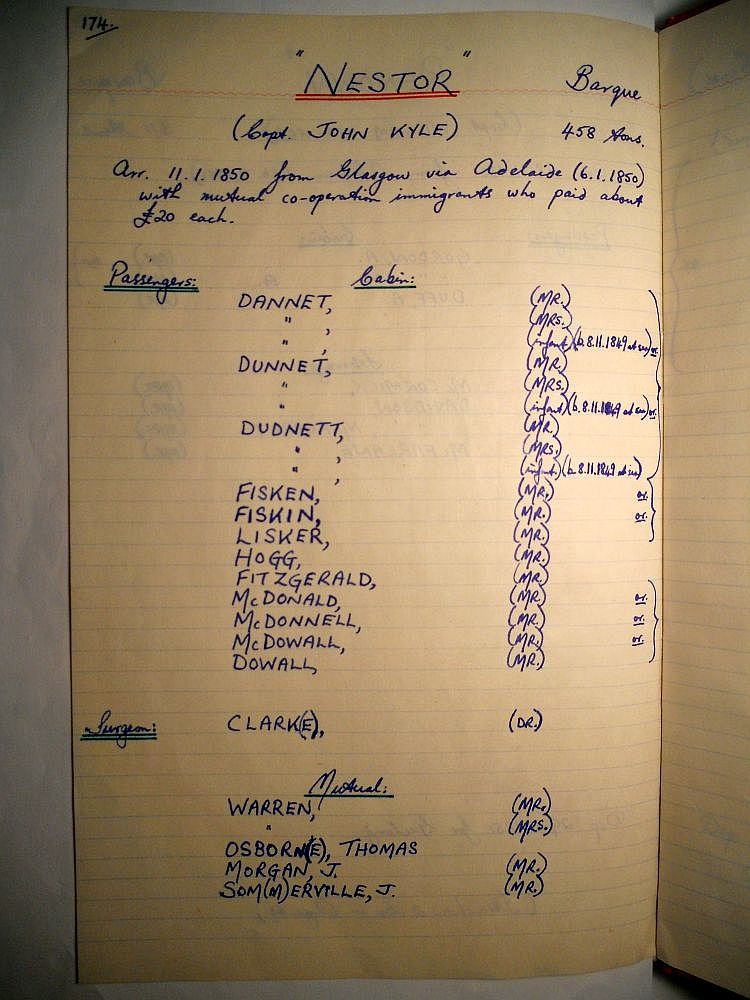 174.
"NESTOR" Barque
(Capt. JOHN KYLE) 458 tons.
Arr. 11.1.1850 from Glasgow via Adelaide (6.1.1850)
with mutual co-operation immigrants who paid about
£20 each.
Passengers: Cabin:
DANNET, (MR.)
" , (MRS.)
" , infant) (b. 8.11.1849 at sea) or.
DUNNET, (MR.)
" (MRS.)
" (infant) (b. 8.11.1849 at sea) or.
DUDNETT, (MR.)
" , (MRS.)
" , (infant) (b. 8.11.1849 at sea)
FISKEN, (MR.) or.
FISKIN, (MR.) or.
LISKER, (MR.)
HOGG, (MR.)
FITZGERALD, (MR.)
McDONALD, (MR.) or.
McDONNELL, (MR.) or.
McDOWALL, (MR.) or.
DOWALL, (MR.)
Surgeon: CLARK(E), (DR.)
Mutual:
WARREN, (MR.)
" (MRS.)
OSBORN(E), THOMAS
MORGAN, J. (MR.)
SOM(M)ERVILLE, J. (MR.)